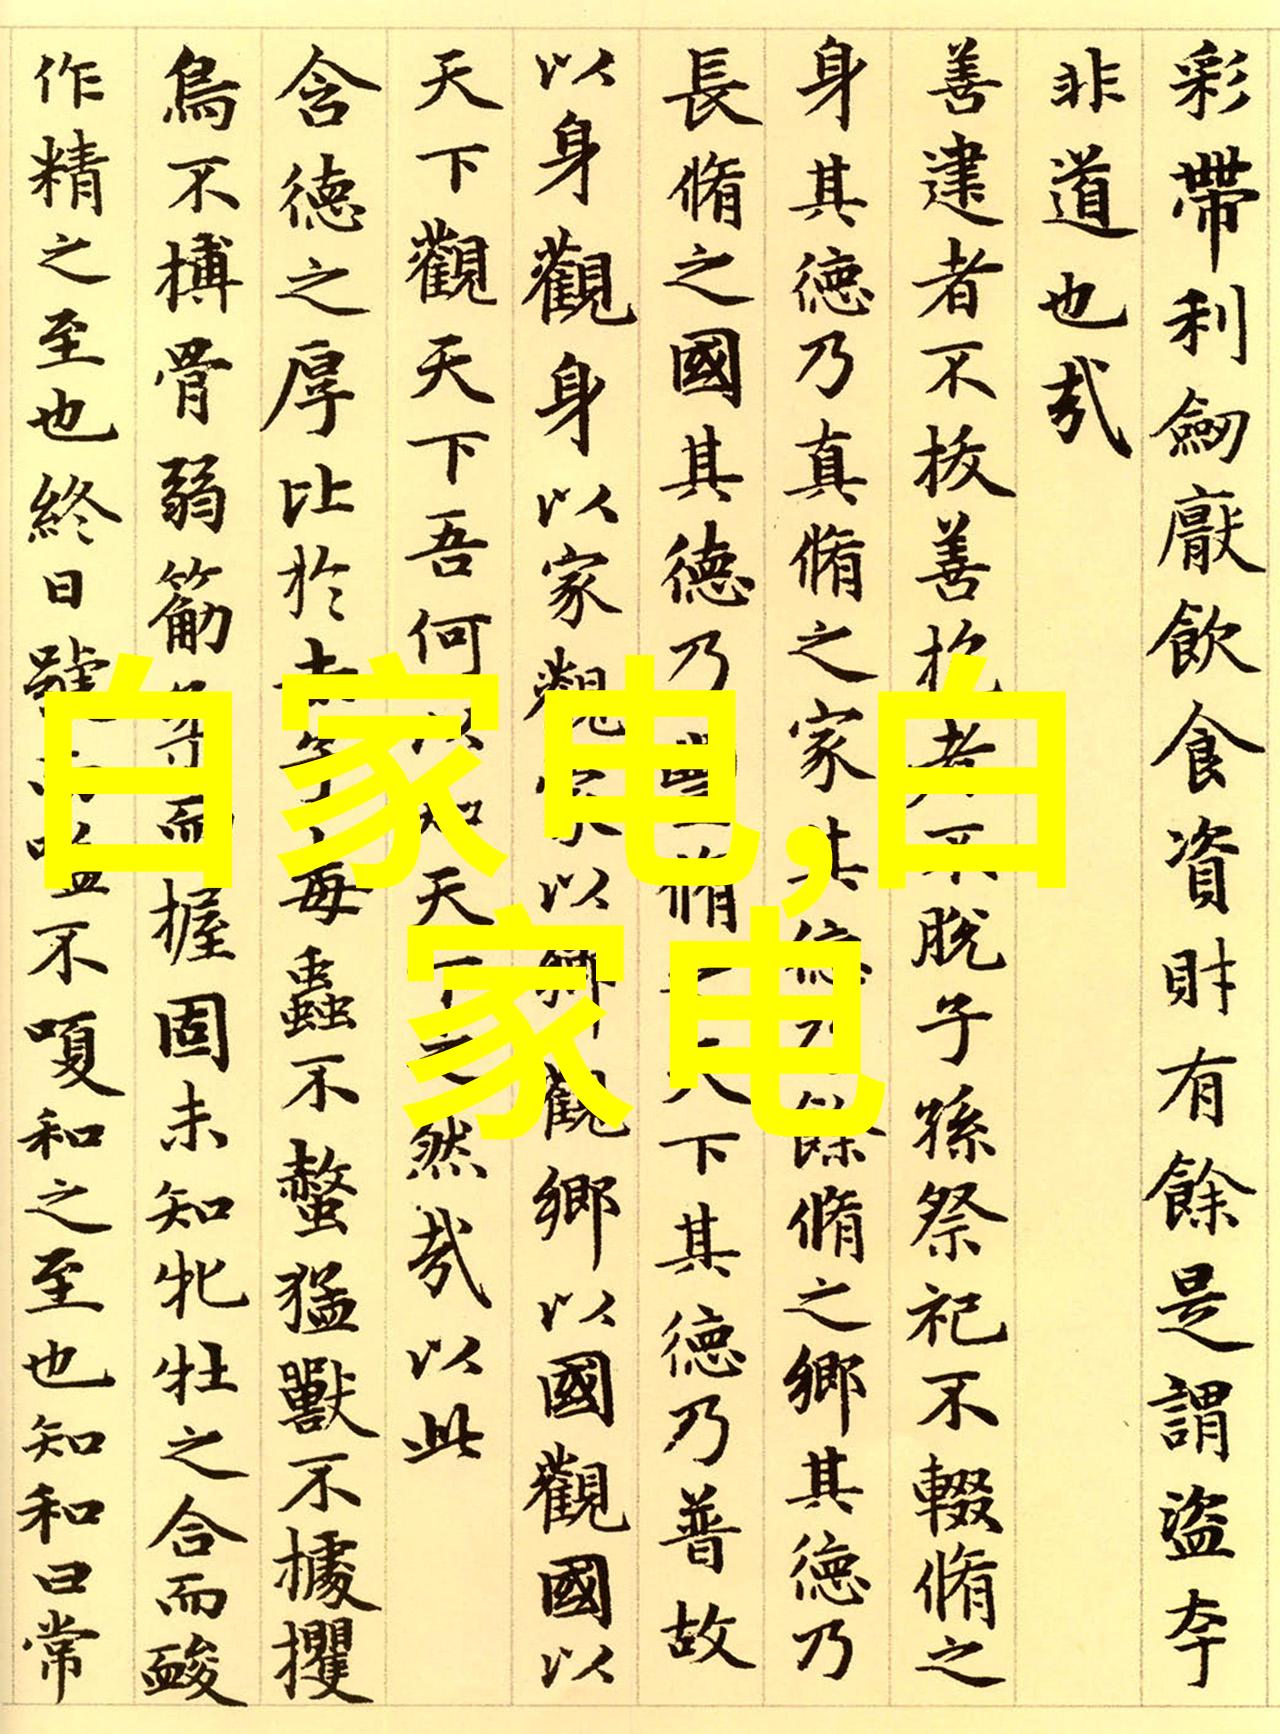 彩帶利劔厭飲食資財有餘是謂盜夸
非道也哉
善建者不拔善抱者不脫子孫祭祀不輟脩之
身其德乃真脩之家其德乃餘脩之鄉其德乃
長脩之國其德乃豐脩之天下其德乃普故
以身觀身以家觀家以鄉觀鄉以國觀國以
天下觀天下吾何以知天下之然哉以此
含德之厚比於赤子毒蟲不螫猛獸不據攫
鳥不搏骨弱筋柔而握固未知牝牡之合而酸
作精之至也終日號而嗌不嗄和之至也知和曰常
白家电,白
家电